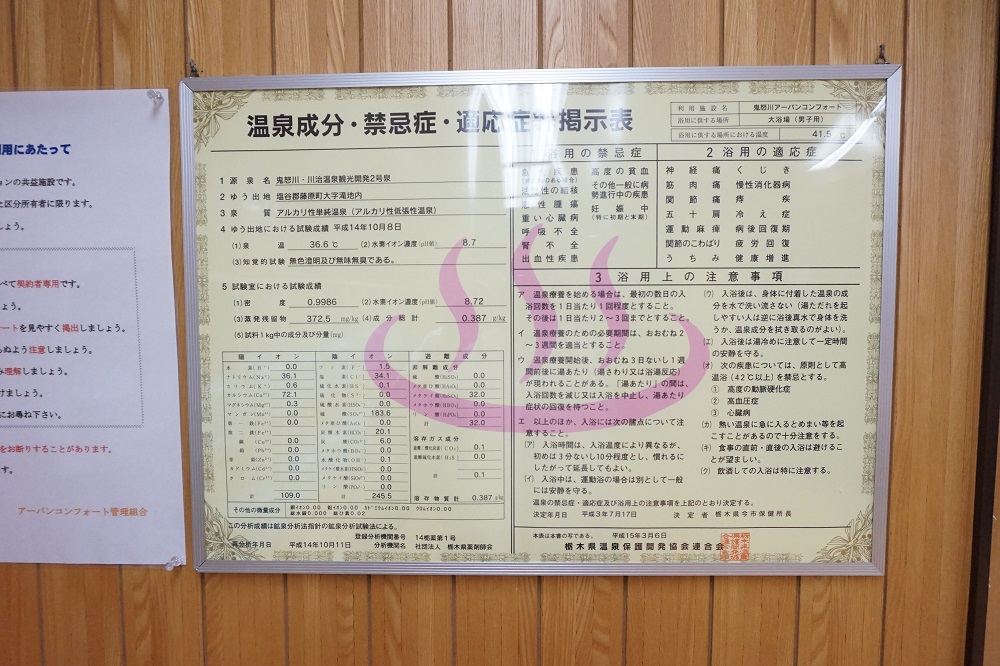 用にあたって
ョンの共益施設です。
た区分所有者に限ります。
しょう。
べて契約者専用です。
ょう。
ートを見やすく掲出しましょう。
らぬよう注意しましょう。
み理解しましょう。
にお尋ね下さい。
をお断りすることがあります。
す。
アーバンコンフォート管理組合
温泉成分・禁忌症・適応症等掲示表
利用施設名 鬼怒川アーバンコンフォート
浴用に供する場所 大浴場(男子用)
浴用に供する場所における温度 41.5℃
1 源泉名 鬼怒川・川治温泉観光開発2号泉
2 ゆう出地 塩谷郡藤原町大字滝地内
3 泉質 アルカリ性単純温泉(アルカリ性低張性温泉)
4 ゆう出地における試験成績 平成14年10月8日
(1)泉温 36.6℃ (2)水素イオン濃度(pH値) 8.7
(3)知覚的試験 無色澄明及び無味無臭である。
5 試験室における試験成績
(1)密度 0.9986 (2)水素イオン濃度(pH値) 8.72
(3)蒸発残留物 372.5 mg/kg (4)成分総計 0.387 g/kg
(5)試料1kg中の成分及び分量(mg)
陽イオン 陰イオン 遊離成分
水素(H⁺) 0.0
ナトリウム(Na⁺) 36.1
カリウム(K⁺) 0.6
カルシウム(Ca²⁺) 72.1
マグネシウム(Mg²⁺) 0.3
マンガン(Mn²⁺) 0.0
0.0
0.0
0.0
0.0
0.0
0.0
0.0
計 109.0
フッ素(F⁻) 1.5
塩素(Cl⁻) 34.1
0.1
0.0
0.0
硫酸(SO₄²⁻) 183.6
0.0
20.1
炭酸(CO₃²⁻) 6.0
0.0
水酸化物(OH⁻) 0.1
0.0
0.0
0.0
計 245.5
非解離成分
硫酸(H₂SO₄) 0.0
0.0
メタケイ酸(H₂SiO₃) 32.0
0.0
計 32.0
溶存ガス成分
0.1
0.0
計 0.1
溶存物質計 0.387 g/kg
その他の微量成分
この分析成績は鉱泉分析法指針の鉱泉分析試験法による。
登録分析機関番号 14栃薬第1号
再分析年月日 平成14年10月11日 分析機関名 社団法人 栃木県薬剤師会
浴用の禁忌症
急性疾患
活動性の結核
悪性腫瘍
重い心臓病
呼吸不全
腎不全
出血性疾患
高度の貧血
その他一般に病勢進行中の疾患
妊娠中
(特に初期と末期)
2 浴用の適応症
神経痛 くじき
筋肉痛 慢性消化器病
関節痛 痔疾
五十肩 冷え症
運動麻痺 病後回復期
関節のこわばり 疲労回復
うちみ 健康増進
3 浴用上の注意事項
ア 温泉療養を始める場合は、最初の数日の入
浴回数を1日当たり1回程度とすること。
その後は1日当たり2~3回までとすること。
イ 温泉療養のための必要期間は、おおむね2
~3週間を適当とすること。
ウ 温泉療養開始後、おおむね3日ないし1週
間前後に湯あたり(湯さわり又は浴湯反応)
が現われることがある。「湯あたり」の間は、
入浴回数を減じ又は入浴を中止し、湯あたり
症状の回復を待つこと。
エ 以上のほか、入浴には次の諸点について注
意すること。
(ア) 入浴時間は、入浴温度により異なるが、
初めは3分ないし10分程度とし、慣れるに
したがって延長してもよい。
(イ) 入浴中は、運動浴の場合は別として一般
には安静を守る。
(ウ) 入浴後は、身体に付着した温泉の成
分を水で洗い流さない(湯ただれを起
しやすい人は逆に浴後真水で身体を洗
うか、温泉成分を拭き取るのがよい)。
(エ) 入浴後は湯冷めに注意して一定時間
の安静を守る。
(オ) 次の疾患については、原則として高
温浴(42℃以上)を禁忌とする。
① 高度の動脈硬化症
② 高血圧症
③ 心臓病
(カ) 熱い温泉に急に入るとめまい等を起
こすことがあるので十分注意をする。
(キ) 食事の直前・直後の入浴は避けるこ
とが望ましい。
(ク) 飲酒しての入浴は特に注意する。
温泉の禁忌症・適応症及び浴用上の注意事項を上記のとおり決定する。
決定年月日 平成3年7月17日 決定者 栃木県今市保健所長
本表は本書の写である。 平成15年3月6日
栃木県温泉保護開発協会連合会